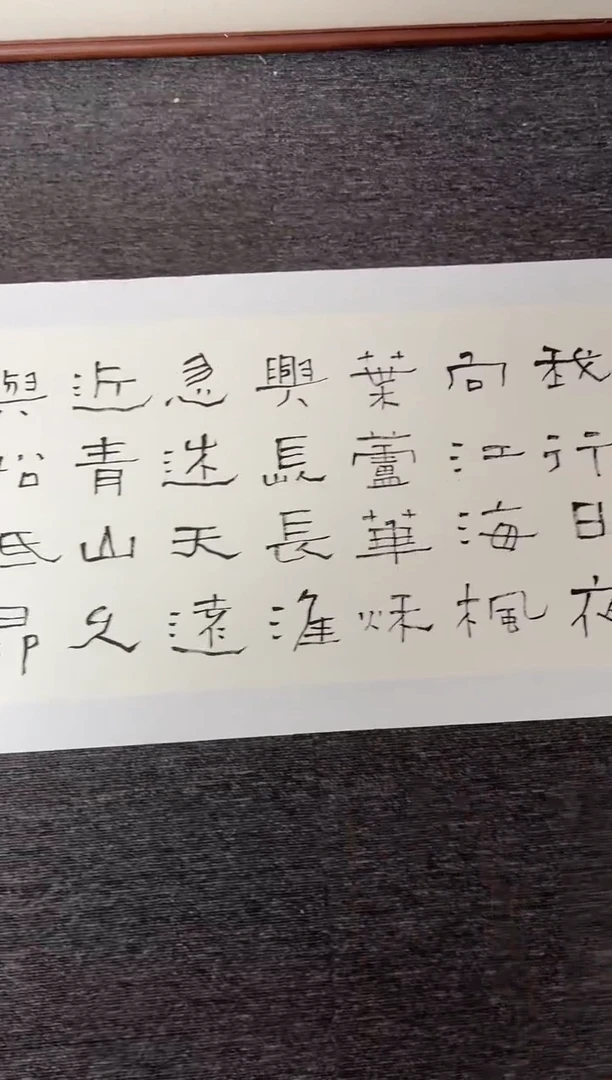 我行日夜
向江海楓
葉蘆華秋
興長長淮
忽迷天遠
近青山久
與